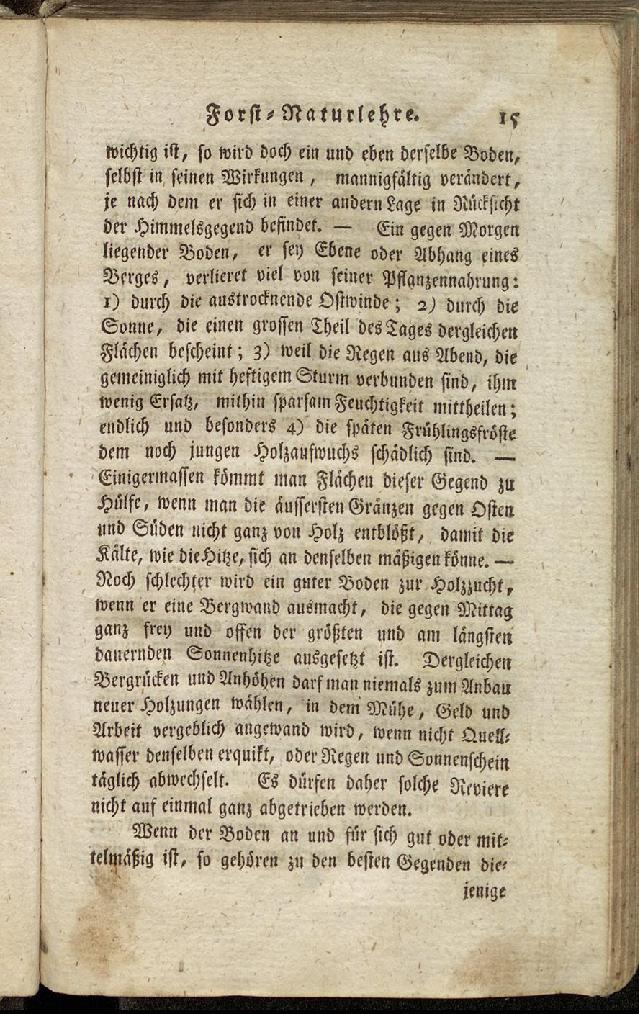 Forst-Naturlehre. 15
wichtig ist, so wird doch ein und eben derselbe Boden,
selbst in seinen Wirkungen, mannigfältig verändert,
je nach dem er sich in einer andern Lage in Rücksicht
der Himmelsgegend befindet. — Ein gegen Morgen
liegender Boden, er sey Ebene oder Abhang eines
Berges, verlieret viel von seiner Pflanzennahrung:
1) durch die austrocknende Ostwinde; 2) durch die
Sonne, die einen grossen Theil des Tages dergleichen
Flächen bescheint; 3) weil die Regen aus Abend, die
gemeiniglich mit heftigem Sturm verbunden sind, ihm
wenig Ersatz, mithin sparsam Feuchtigkeit mittheilen;
endlich und besonders 4) die späten Frühlingsfröste
dem noch jungen Holzaufwuchs schädlich sind. —
Einigermassen kömmt man Flächen dieser Gegend zu
Hülfe, wenn man die äussersten Gränzen gegen Osten
und Süden nicht ganz von Holz entblößt, damit die
Kälte, wie die Hitze, sich an denselben mäßigen könne. —
Noch schlechter wird ein guter Boden zur Holzzucht,
wenn er eine Bergwand ausmacht, die gegen Mittag
ganz frey und offen der größten und am längsten
dauernden Sonnenhitze ausgesetzt ist. Dergleichen
Bergrücken und Anhöhen darf man niemals zum Anbau
neuer Holzungen wählen, in dem Mühe, Geld und
Arbeit vergeblich angewand wird, wenn nicht Quell-
wasser denselben erquikt, oder Regen und Sonnenschein
täglich abwechselt. Es dürfen daher solche Reviere
nicht auf einmal ganz abgetrieben werden.
Wenn der Boden an und für sich gut oder mit-
telmäßig ist, so gehören zu den besten Gegenden die-
jenige